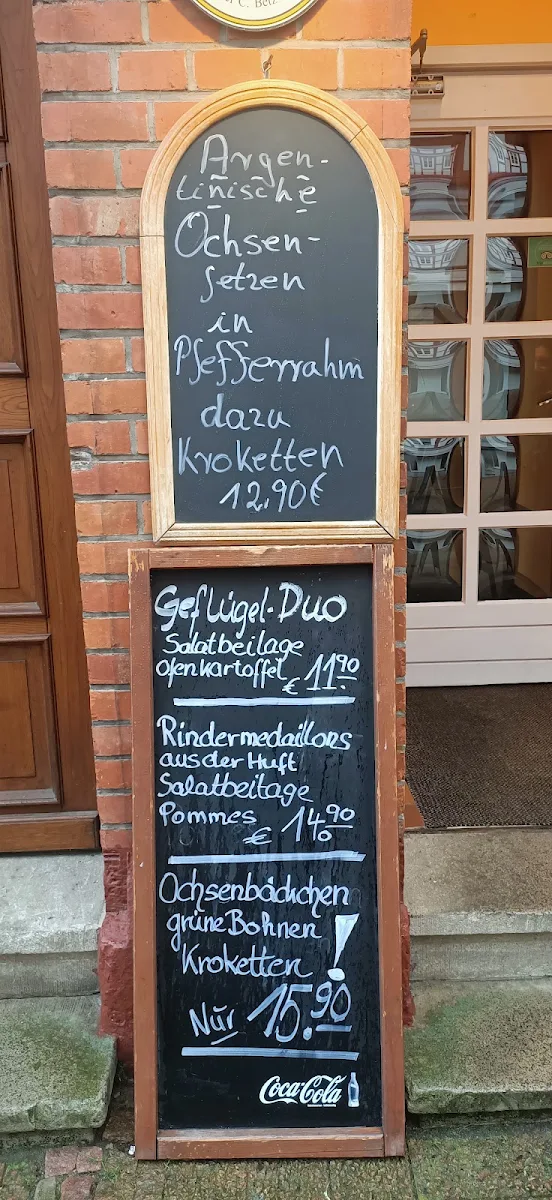 C. Betz
Argen-
tinische
Ochsen-
fetzen
in
Pfefferrahm
dazu
Kroketten
12,90€
Geflügel-Duo
Salatbeilage
Ofenkartoffel
€ 11.90
Rindermedaillons
aus der Huft
Salatbeilage
Pommes
€ 14.90
Ochsenbäckchen
grüne Bohnen
Kroketten !
Nur 15.90
Coca-Cola